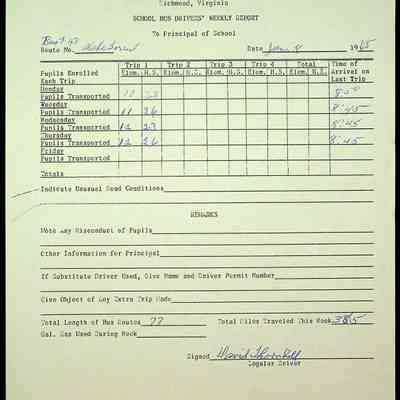 Richmond, Virginia
SCHOOL BUS DRIVERS' WEEKLY REPORT
To Principal of School
Bus # 97
Route No. Date Jan 8 1965
Trip 1 Trip 2 Trip 3 Trip 4 Total Time of
Pupils Enrolled Elem. H.S. Elem. H.S. Elem. H.S. Elem. H.S. Elem. H.S. Arrival on
Each Trip Last Trip
Monday
Pupils Transported 8:50
Tuesday
Pupils Transported 11 26 8:45
Wednesday
Pupils Transported 12 23 8:45
Thursday
Pupils Transported 12 26 8:45
Friday
Pupils Transported
Totals
Indicate Unusual Road Conditions
REMARKS
Note Any Misconduct of Pupils
Other Information for Principal
If Substitute Driver Used, Give Name and Driver Permit Number
Give Object of Any Extra Trip Made
Total Length of Bus Routes 77 Total Miles Traveled This Week 385
Gal. Gas Used During Week
Signed David Thornhill
Regular Driver